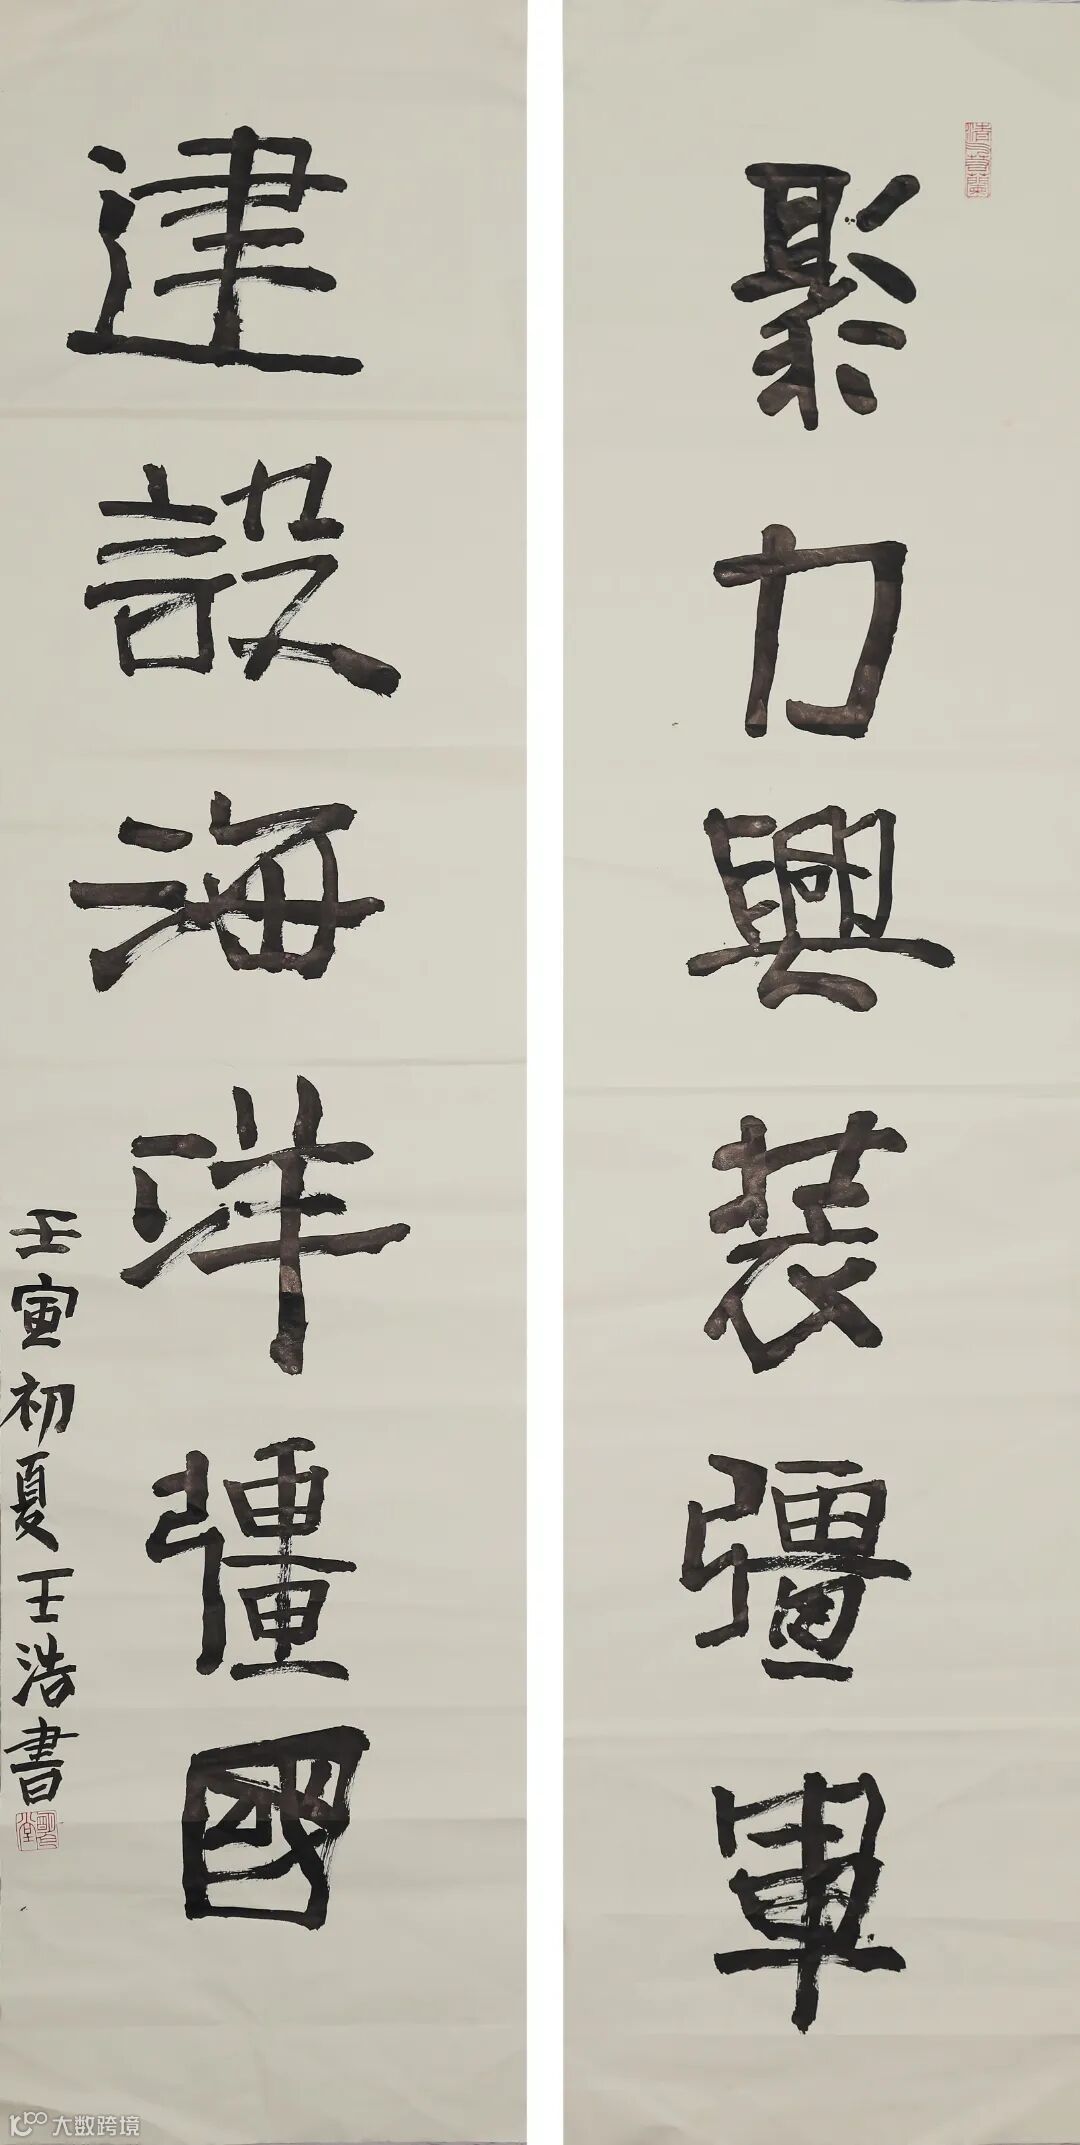 聚力興装彊軍
建設海洋彊國
壬寅初夏王浩書
大数跨境